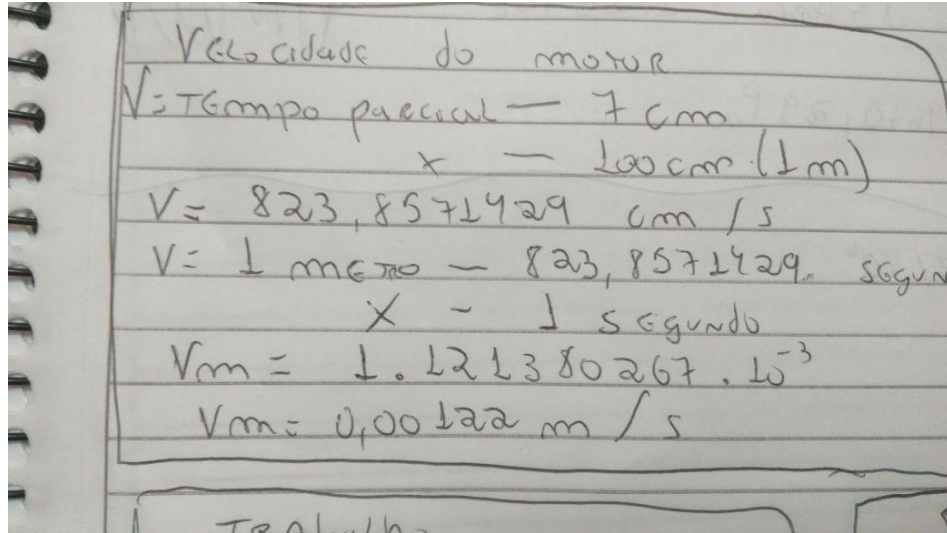 Velocidade do motor
V= Tempo parcial — 7 cm
x — 100 cm (1 m)
V= 823,8571429 cm / s
V= 1 metro — 823,8571429. segun
X - 1 segundo
Vm = 1.121380267 . 10⁻³
Vm= 0,00122 m / s
Trabalho